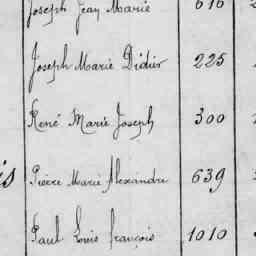 Joseph Jean Marie 616
Joseph Marie Didier 225
René Marie Joseph 300
is Pierre Marie Alexandre 639
Paul Louis françois 1010